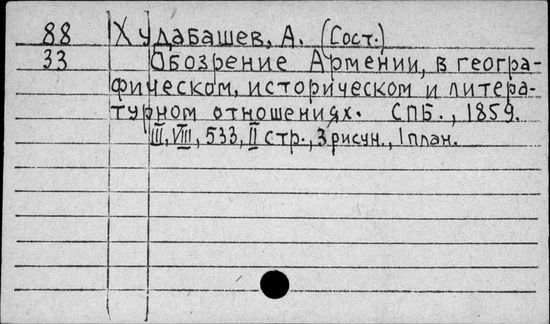 88 Худабашев, А. (Сост.)
33 Обозрение Армении, в геогра-
фическом, историческом и литера-
турном отношениях. СПБ., 1859.
III, VIII, 533, II стр., 3 рисун., 1 план.